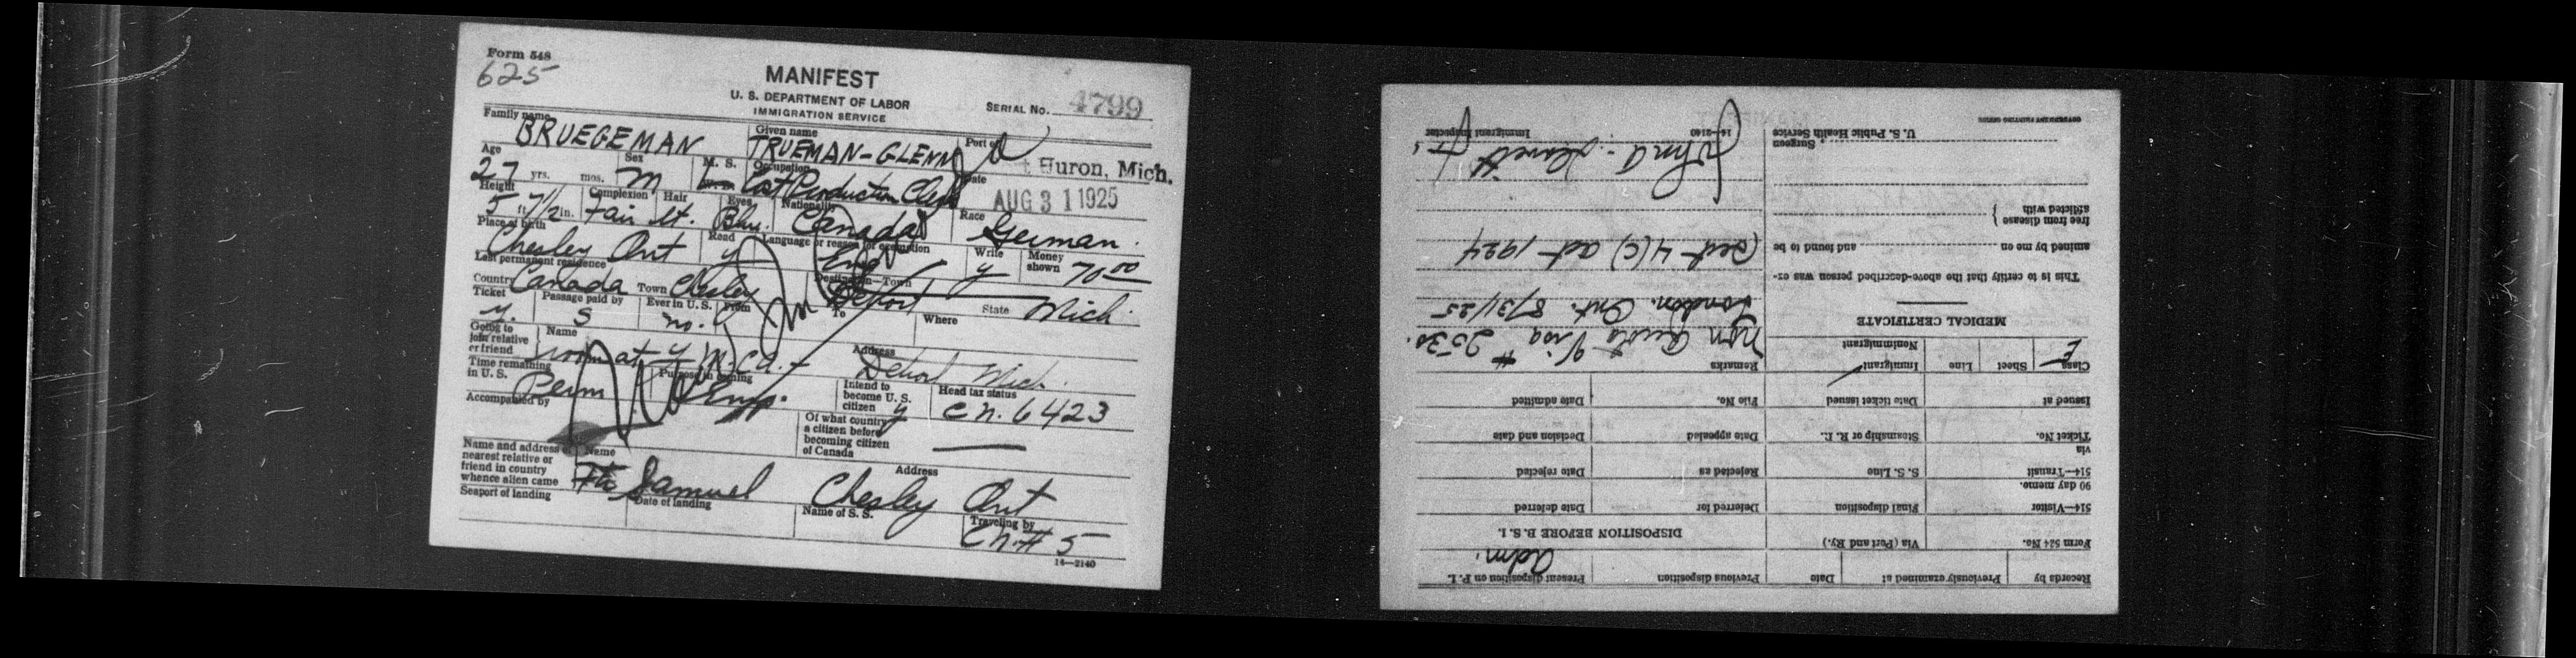 Form 548
625
MANIFEST
U. S. DEPARTMENT OF LABOR
IMMIGRATION SERVICE
SERIAL No. 4799
Family name BRUEGEMAN Given name TRUEMAN-GLENN Port of
t Huron, Mich.
Age 27 yrs. mos. Sex M M. S. Occupation Cost Production Clerk Date AUG 31 1925
Height 5 ft 7 1/2 in. Complexion Fair Hair lt. Eyes Blue. Nationality Canada Race German.
Place of birth Chesley Ont Read y Language or reason for exemption Eng Write y Money shown 70 00
Last permanent residence
Country Canada Town Chesley Destination—Town Detroit State Mich.
Ticket y. Passage paid by S Ever in U.S. no. From To Where
Going to join relative or friend Name room at Y.M.C.A. Address Detroit Mich.
Time remaining in U. S. Perm Purpose in coming Emp. Intend to become U. S. citizen y Head tax status C.N. 6423
Accompanied by Of what country a citizen before becoming citizen of Canada —
Name and address of nearest relative or friend in country whence alien came Name Fth Samuel Address Chesley Ont
Seaport of landing Date of landing Name of S. S. Traveling by C.N.# 5
14—2140
Records by Previously examined at Date Previous disposition Present disposition on P. I. adm.
Form 524 No. Via (Port and Ry.) DISPOSITION BEFORE B. S. I.
514—Visitor 90 day memo. Final disposition Deferred for Date deferred
514—Transit via S. S. Line Rejected as Date rejected
Ticket No. Steamship or R. R. Date appealed Decision and date
Issued at Date ticket issued File No. Date admitted
Class E Sheet Line Immigrant Nonimmigrant
Remarks
Non Quota Visa # 2530.
London. Ont. 8/31/25
(Sect 4(c) act 1924
MEDICAL CERTIFICATE
This is to certify that the above-described person was examined by me on and found to be
free from disease
afflicted with
Surgeon
U. S. Public Health Service
Immigrant Inspector
14—2140
GOVERNMENT PRINTING OFFICE